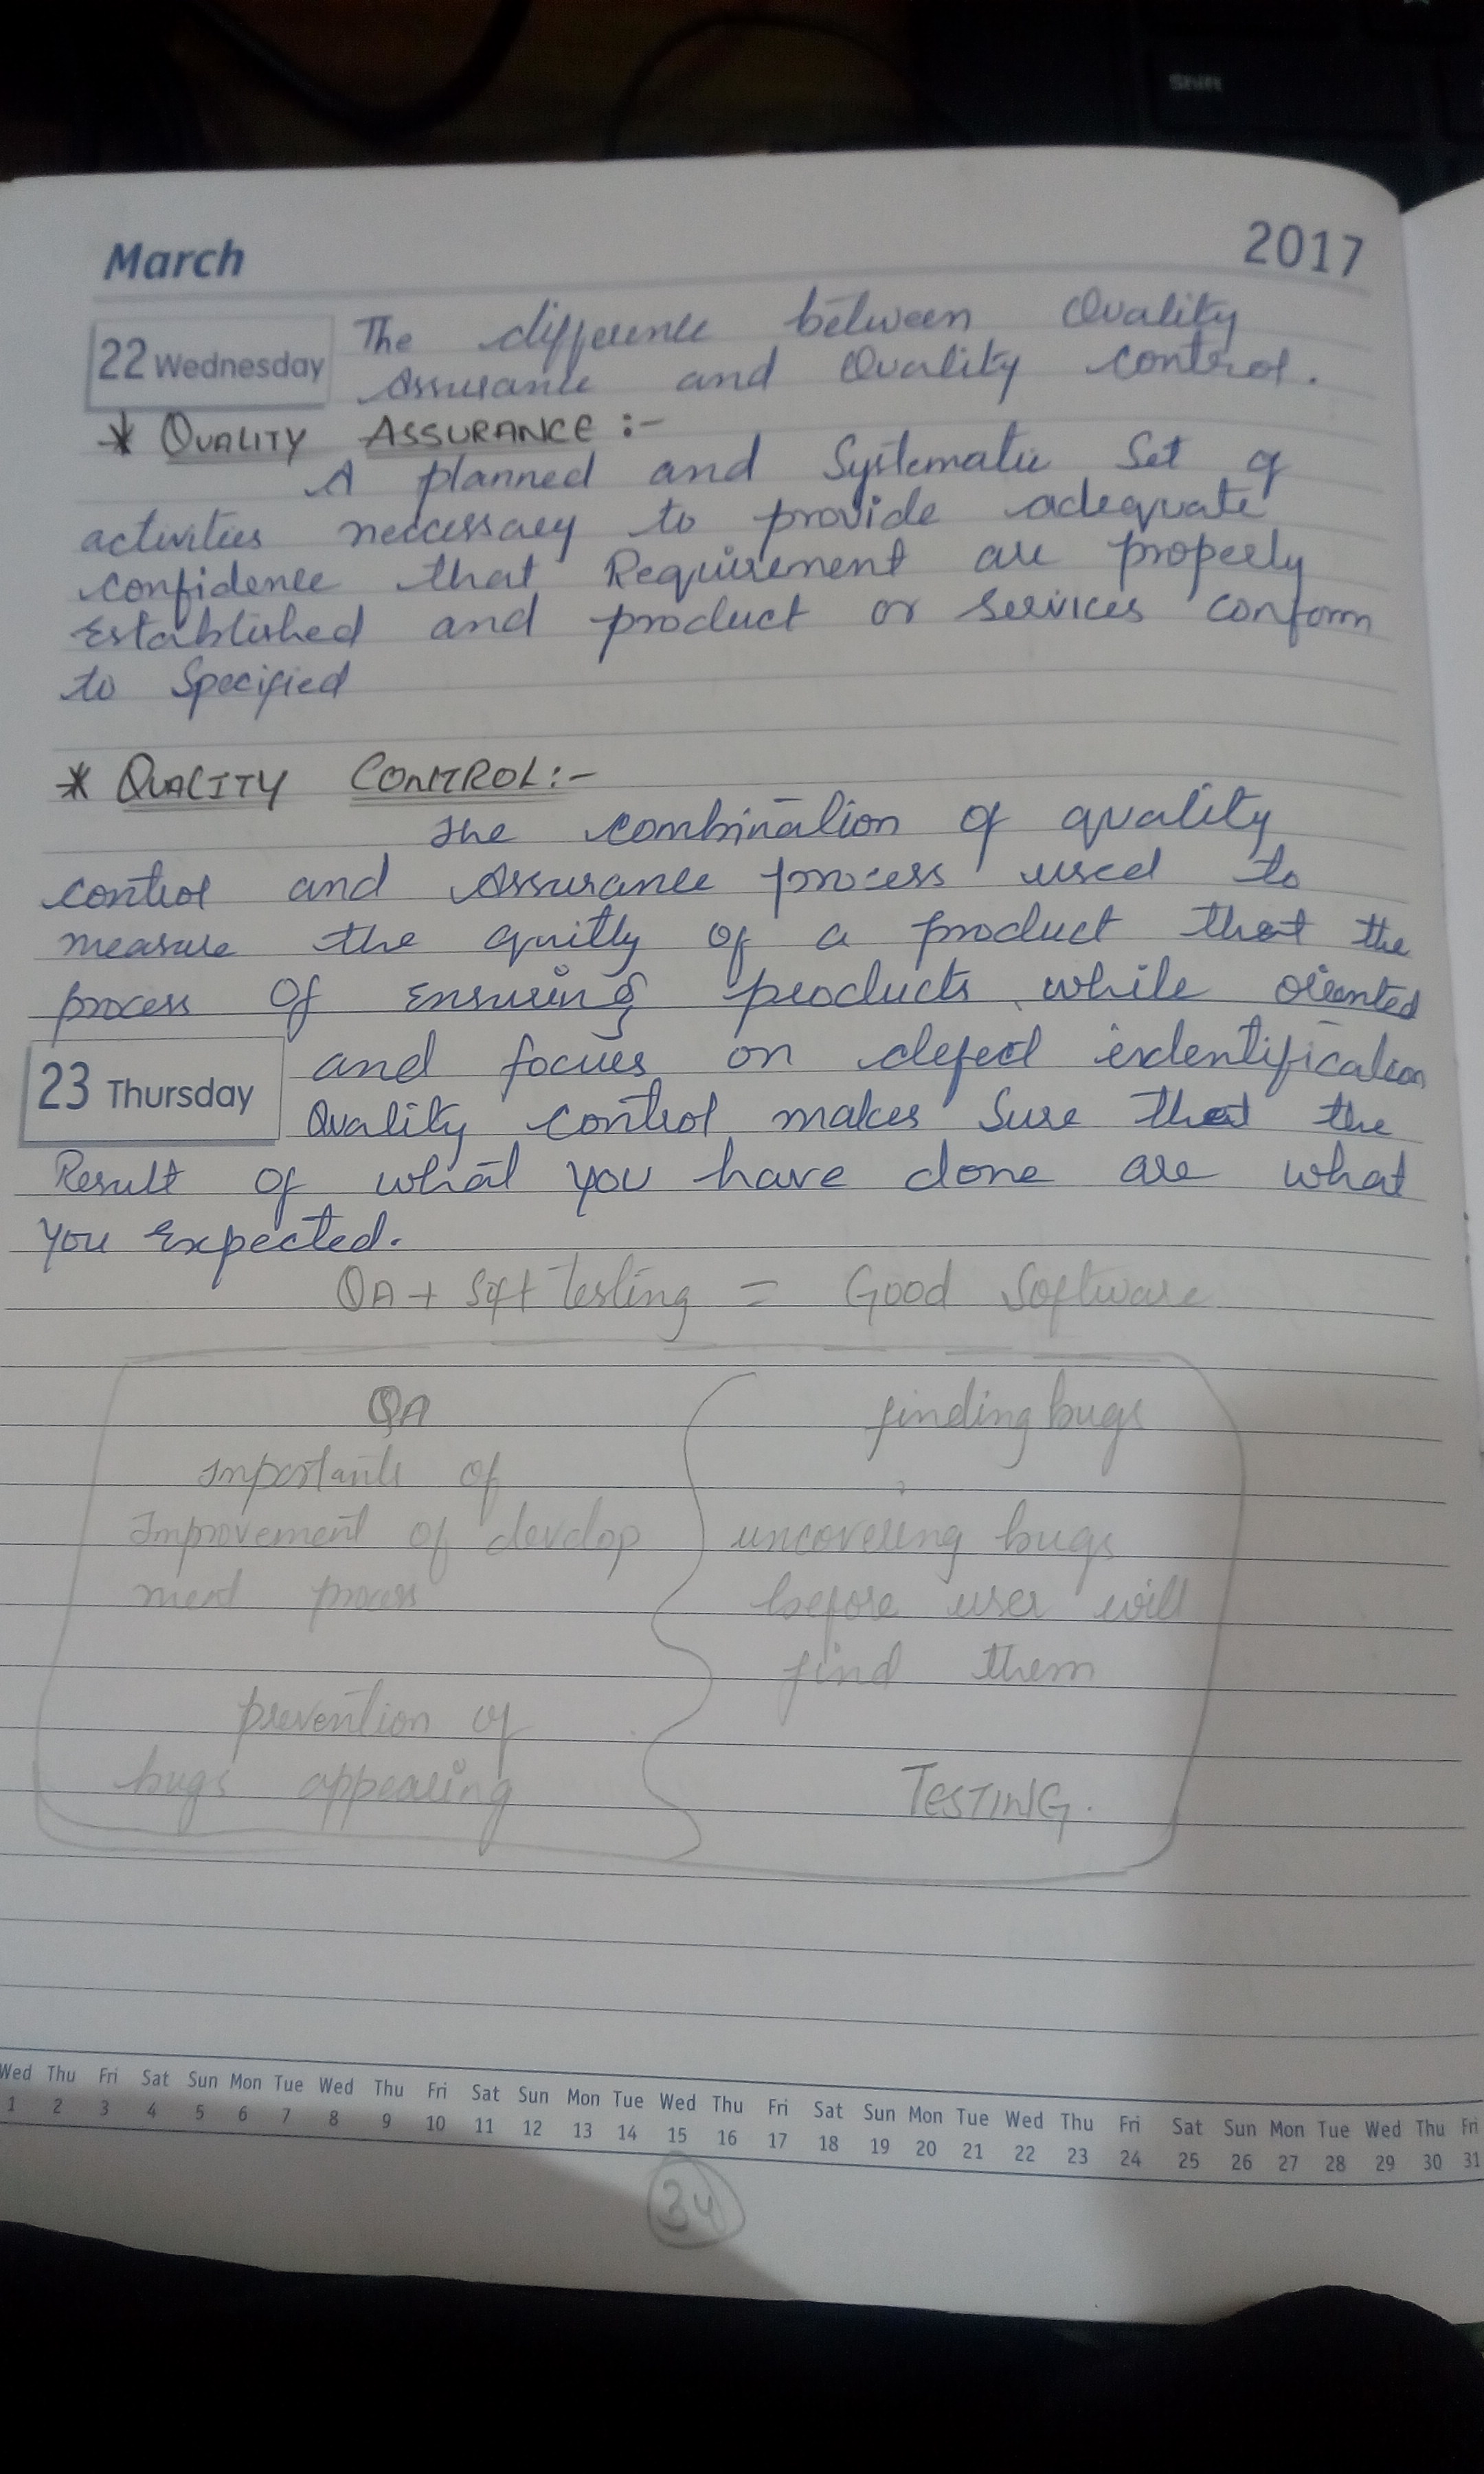 Shift
March 2017
22 Wednesday The difference between Quality
Assurance and Quality control.
* QUALITY ASSURANCE :-
A planned and Systematic Set of
activities neccessary to provide adequate
confidence that Requirement are properly
Established and product or services conform
to Specified
* QUALITY CONTROL:-
The combination of quality
control and Assurance process used to
measure the quitly of a product that the
process of ensuring products while oriented
23 Thursday and focues on defect identification
Quality control makes Sure that the
Result of what you have done are what
you Expected.
QA + Soft testing = Good Software
QA finding bugs
of
Improvement of develop uncovering bugs
ment process before user will
find them
prevention of
bugs appearing TESTING.
Wed Thu Fri Sat Sun Mon Tue Wed Thu Fri Sat Sun Mon Tue Wed Thu Fri Sat Sun Mon Tue Wed Thu Fri Sat Sun Mon Tue Wed Thu Fri
1 2 3 4 5 6 7 8 9 10 11 12 13 14 15 16 17 18 19 20 21 22 23 24 25 26 27 28 29 30 31
34